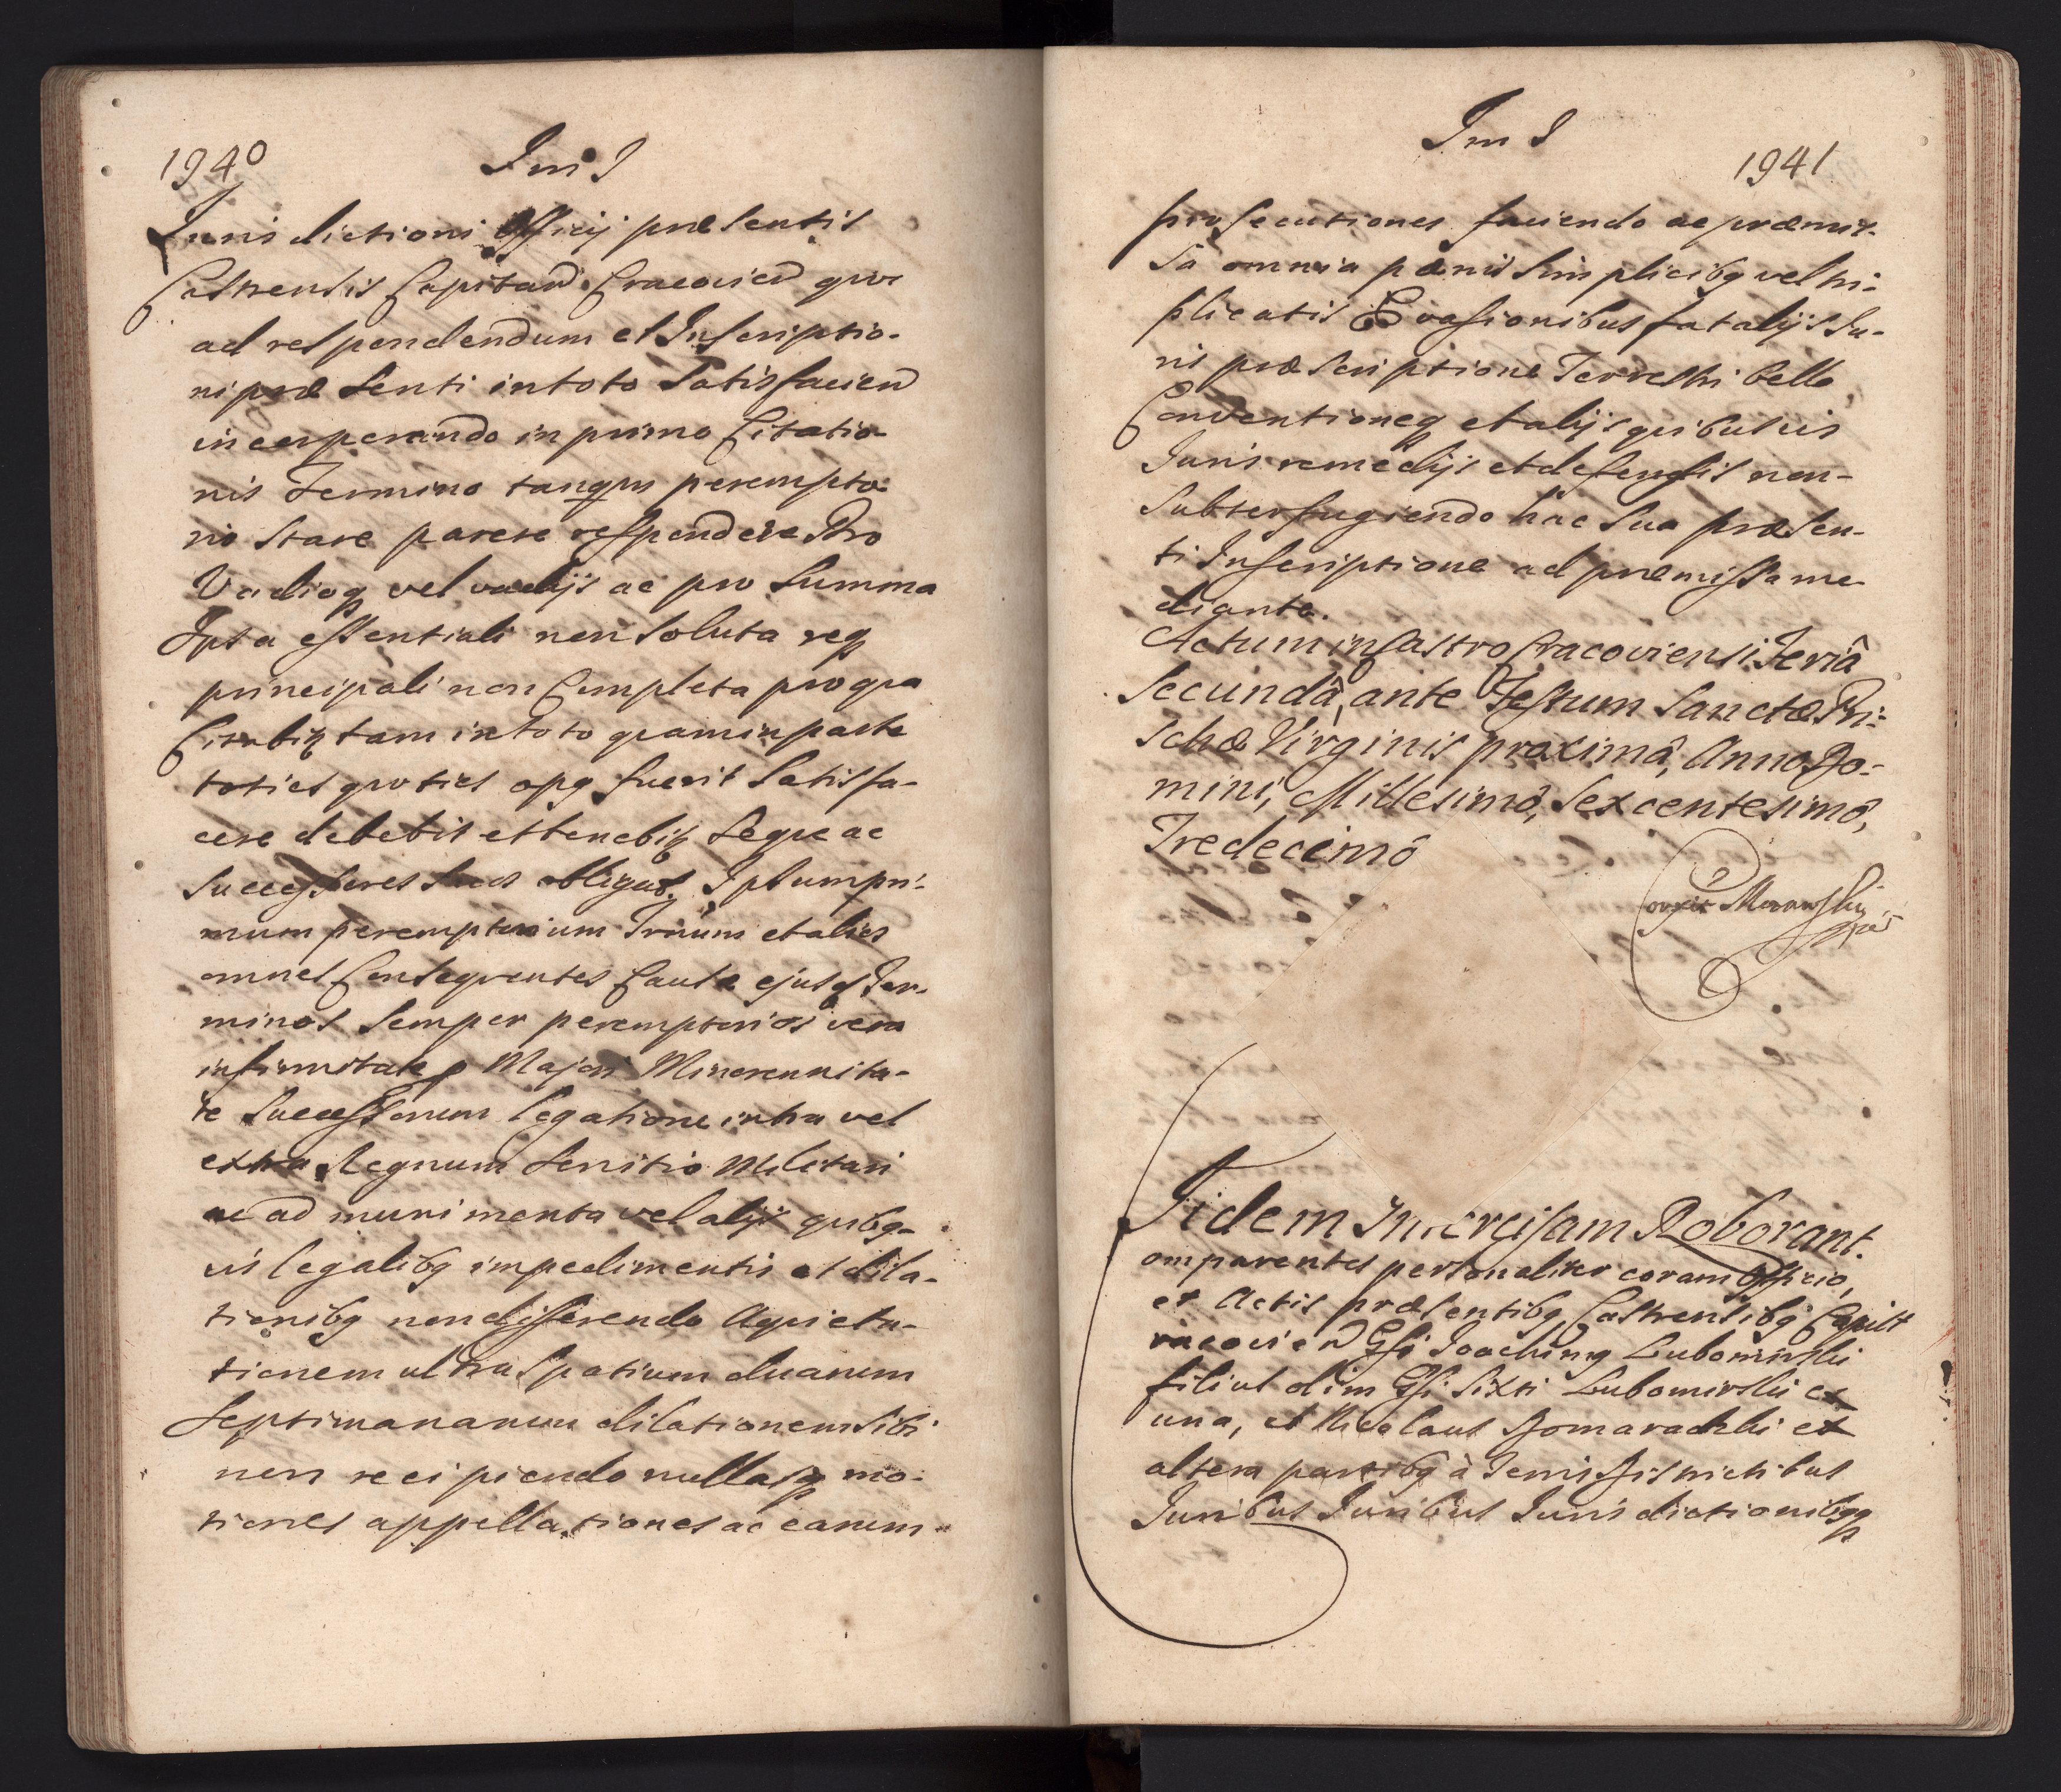 1940
Im I
Juris dictioni Officij præsentis
Castrensis Capitan Cracovien quo
ad respondendum et Inscriptio-
ni præsenti in toto Satisfacien
in comperendo in primo Citatio-
nis Termino tanqm perempto-
rio Stare parere respondere Pro
Vadioq vel vadijs ac pro Summa
Ipsa essentiali non Soluta req
principali non Completa pro qua
Citabit tam in toto quam in parte
toties quoties opq fuerit Satisfa-
cere debebit et tenebit Seque ac
Successores Suos obligat. Ipsum pri-
mum peremptorium Trium et alios
omnes Consequentes Causæ ejusq Ter-
minos Semper peremptorios vera
infirmitate p Majori Minorennita-
te Successorum legatione intra vel
extra Regnum Servitio Militari
ac ad munimenta vel alijs quibq-
vis legalibq impedimentis et dila-
tionibq non differendo Aquieta-
tionem ultra Spatium duarum
Septimanarum dilationem Sibi
non recipiendo nullasq mo-
tiones appellationes ac earum-
Im I
1941
prosecutiones faciendo ac præmis-
sa omnia pænis Simplicibq vel tri-
plicatis Evasionibus fatalijs Iu-
ris præscriptione Terrestri bello
Conventioneq et alijs quibusvis
Juris remedijs et defensis non-
Subterfugiendo hac Sua præsen-
ti Inscriptione ad præmissa me-
diante.
Actum in Castro Cracoviensi Feriâ
Secundâ, ante Festum Sanctæ Pri-
schæ Virginis proximâ, Anno Do-
mini, Millesimô, Sexcentesimô,
Tredecimô
Corexit Morawski
Fidem Intercisam Roborant.
omparentes personaliter coram Officio,
et Actis præsentibq Castrensibq Capilt
racovien Gsi Joachimq Lubomirski
filius olim Gsi Sixti Lubomirski ex
una, et Nicolaus Domaradzki ex
altera partibq à Terris Districtibus
Juribus Juribus Jurisdictionibqq